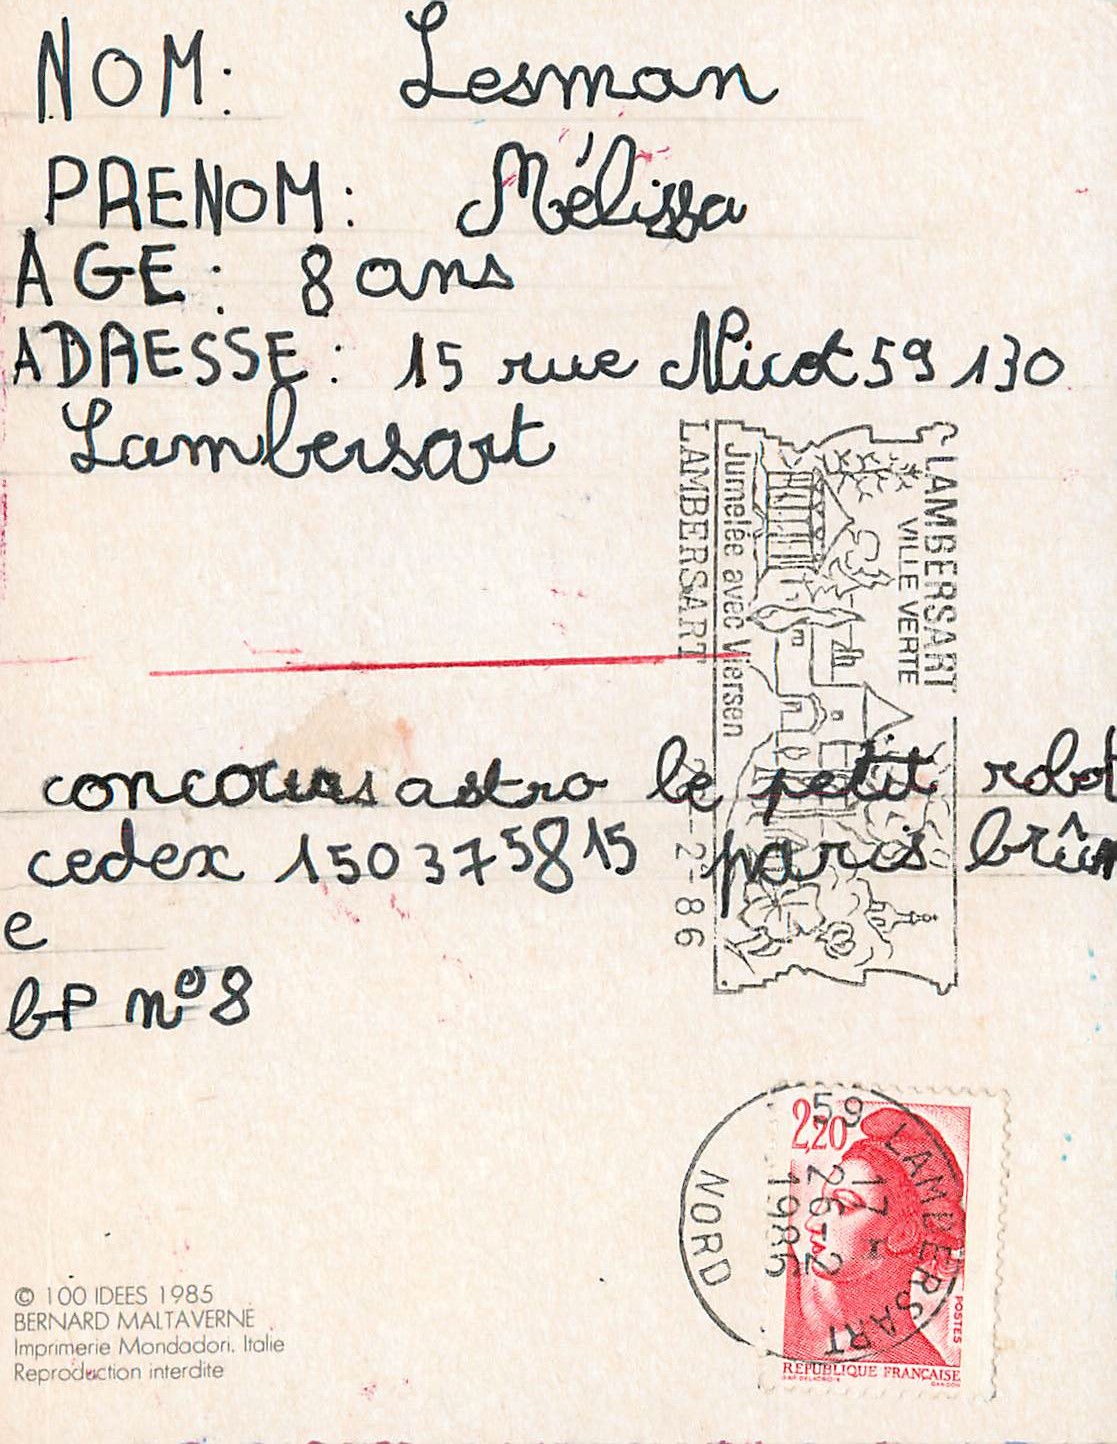 NOM: Lesman
PRENOM: Mélissa
AGE: 8 ans
ADRESSE: 15 rue Nicot 59 130
Lambersart
LAMBERSART
VILLE VERTE
Jumelée avec Viersen
LAMBERSART
2-86
concours astro le petit robot
cedex 150 375815 paris brûn
e
bP n°8
2,20
59 LAMBERSART
17
26-2
1986
NORD
POSTES
REPUBLIQUE FRANÇAISE
© 100 IDEES 1985
BERNARD MALTAVERNE
Imprimerie Mondadori. Italie
Reproduction interdite